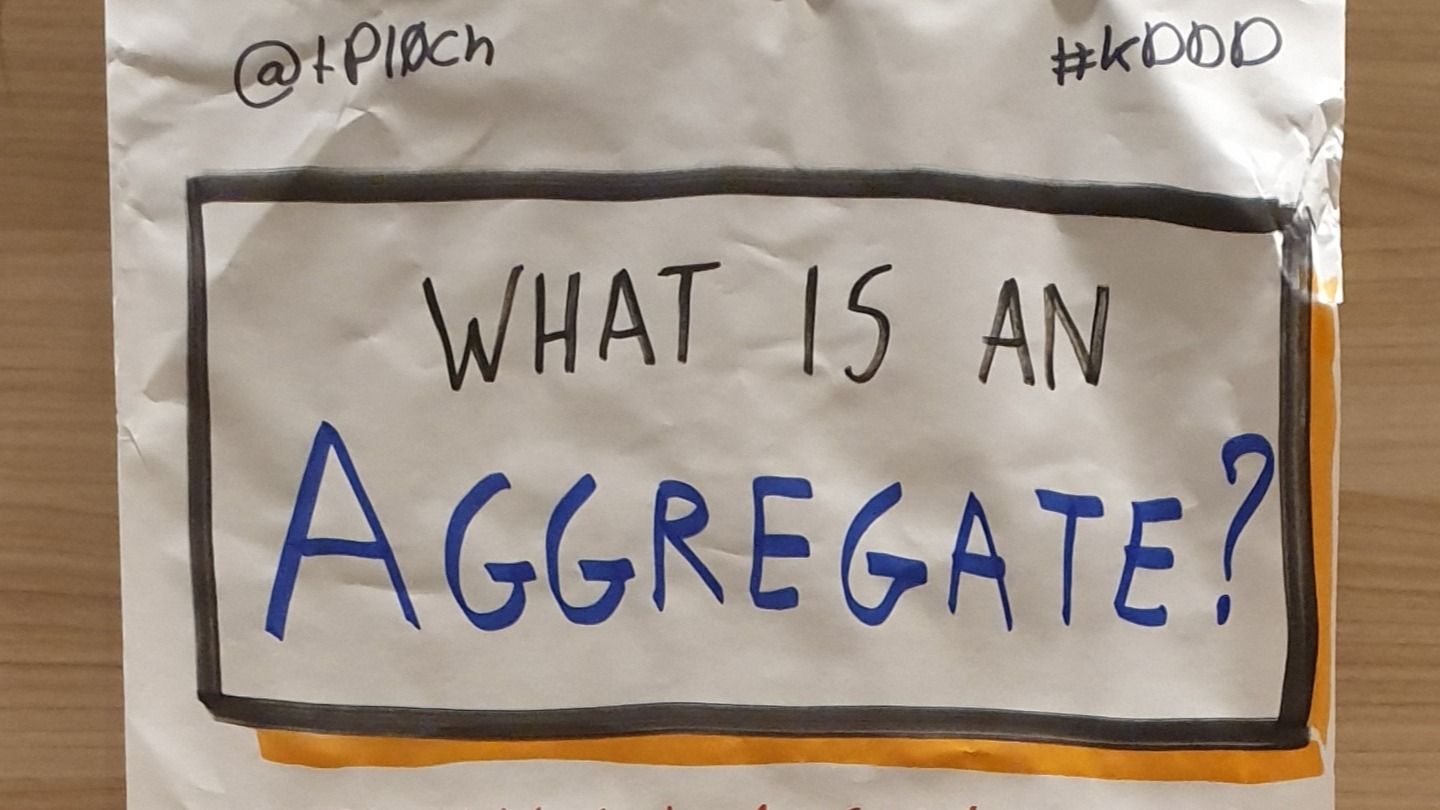 @tPl0ch #KDDD
WHAT IS AN
AGGREGATE?